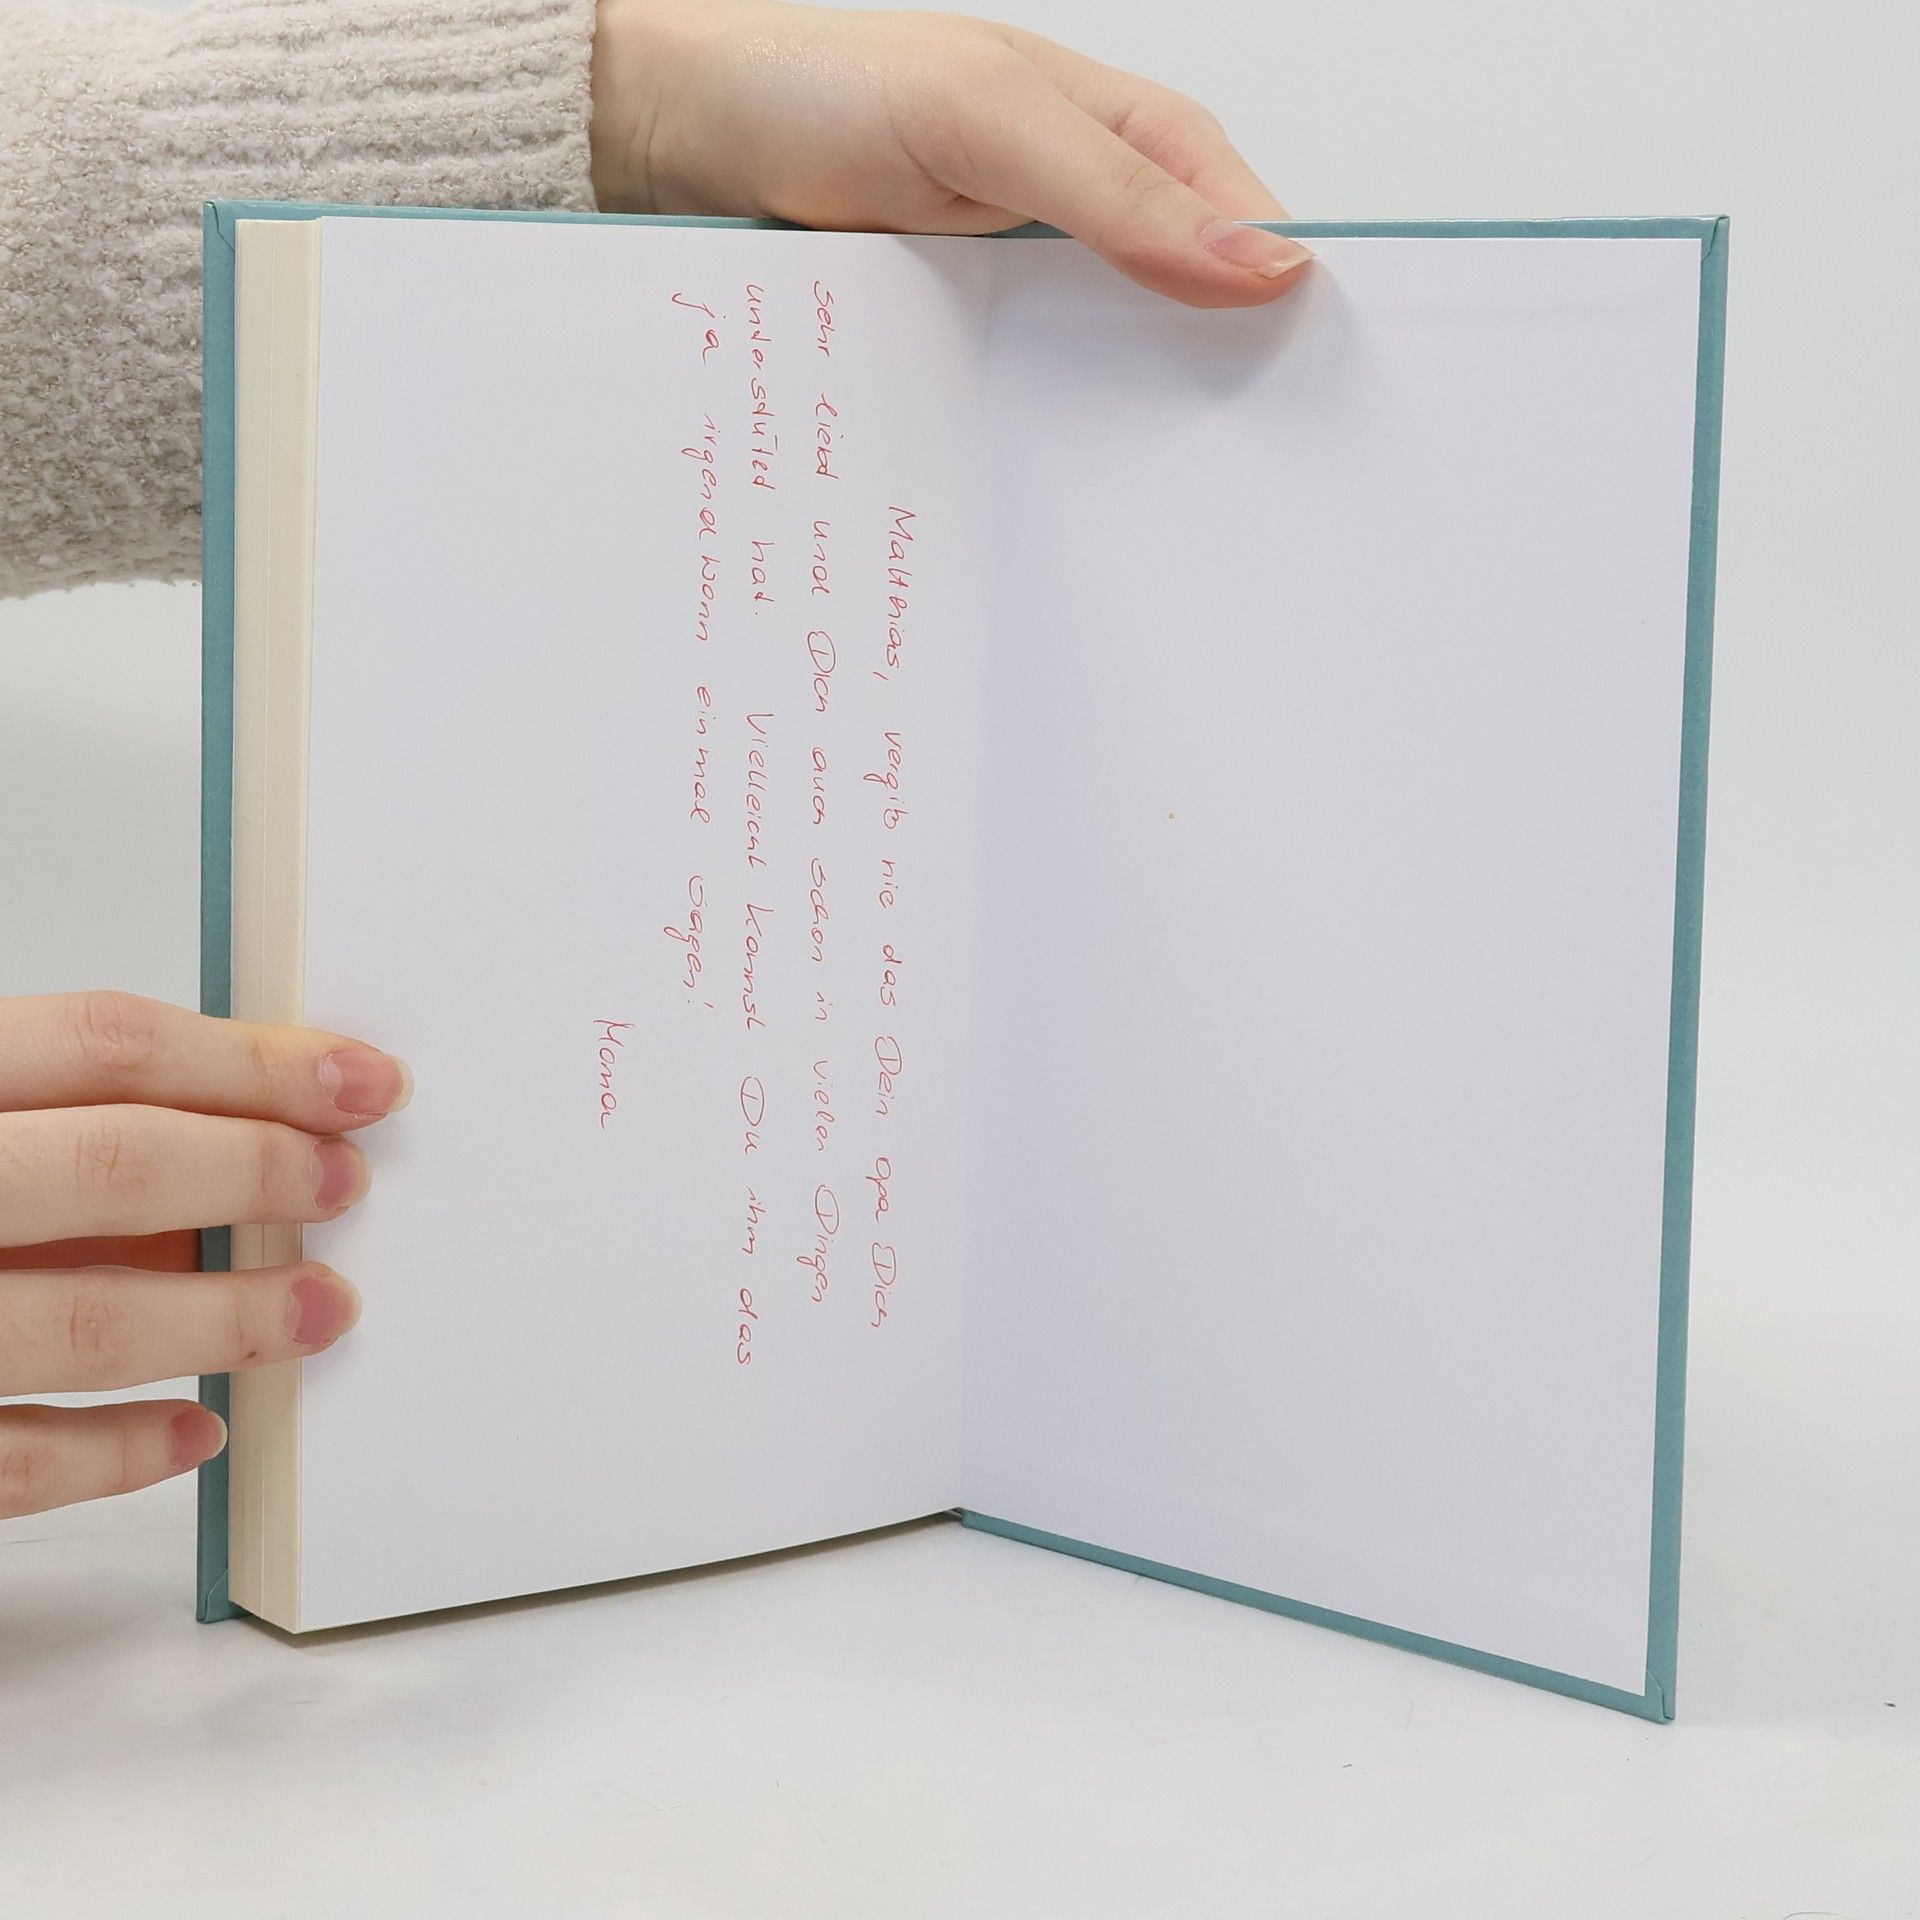 Matthias, vergib nie das Dein Opa Dich
sehr liebt und Dich auch schon in vielen Dingen
unterstüted hat. Vielleicht kannst Du ihm das
ja irgendwann einmal sagen!
Mama